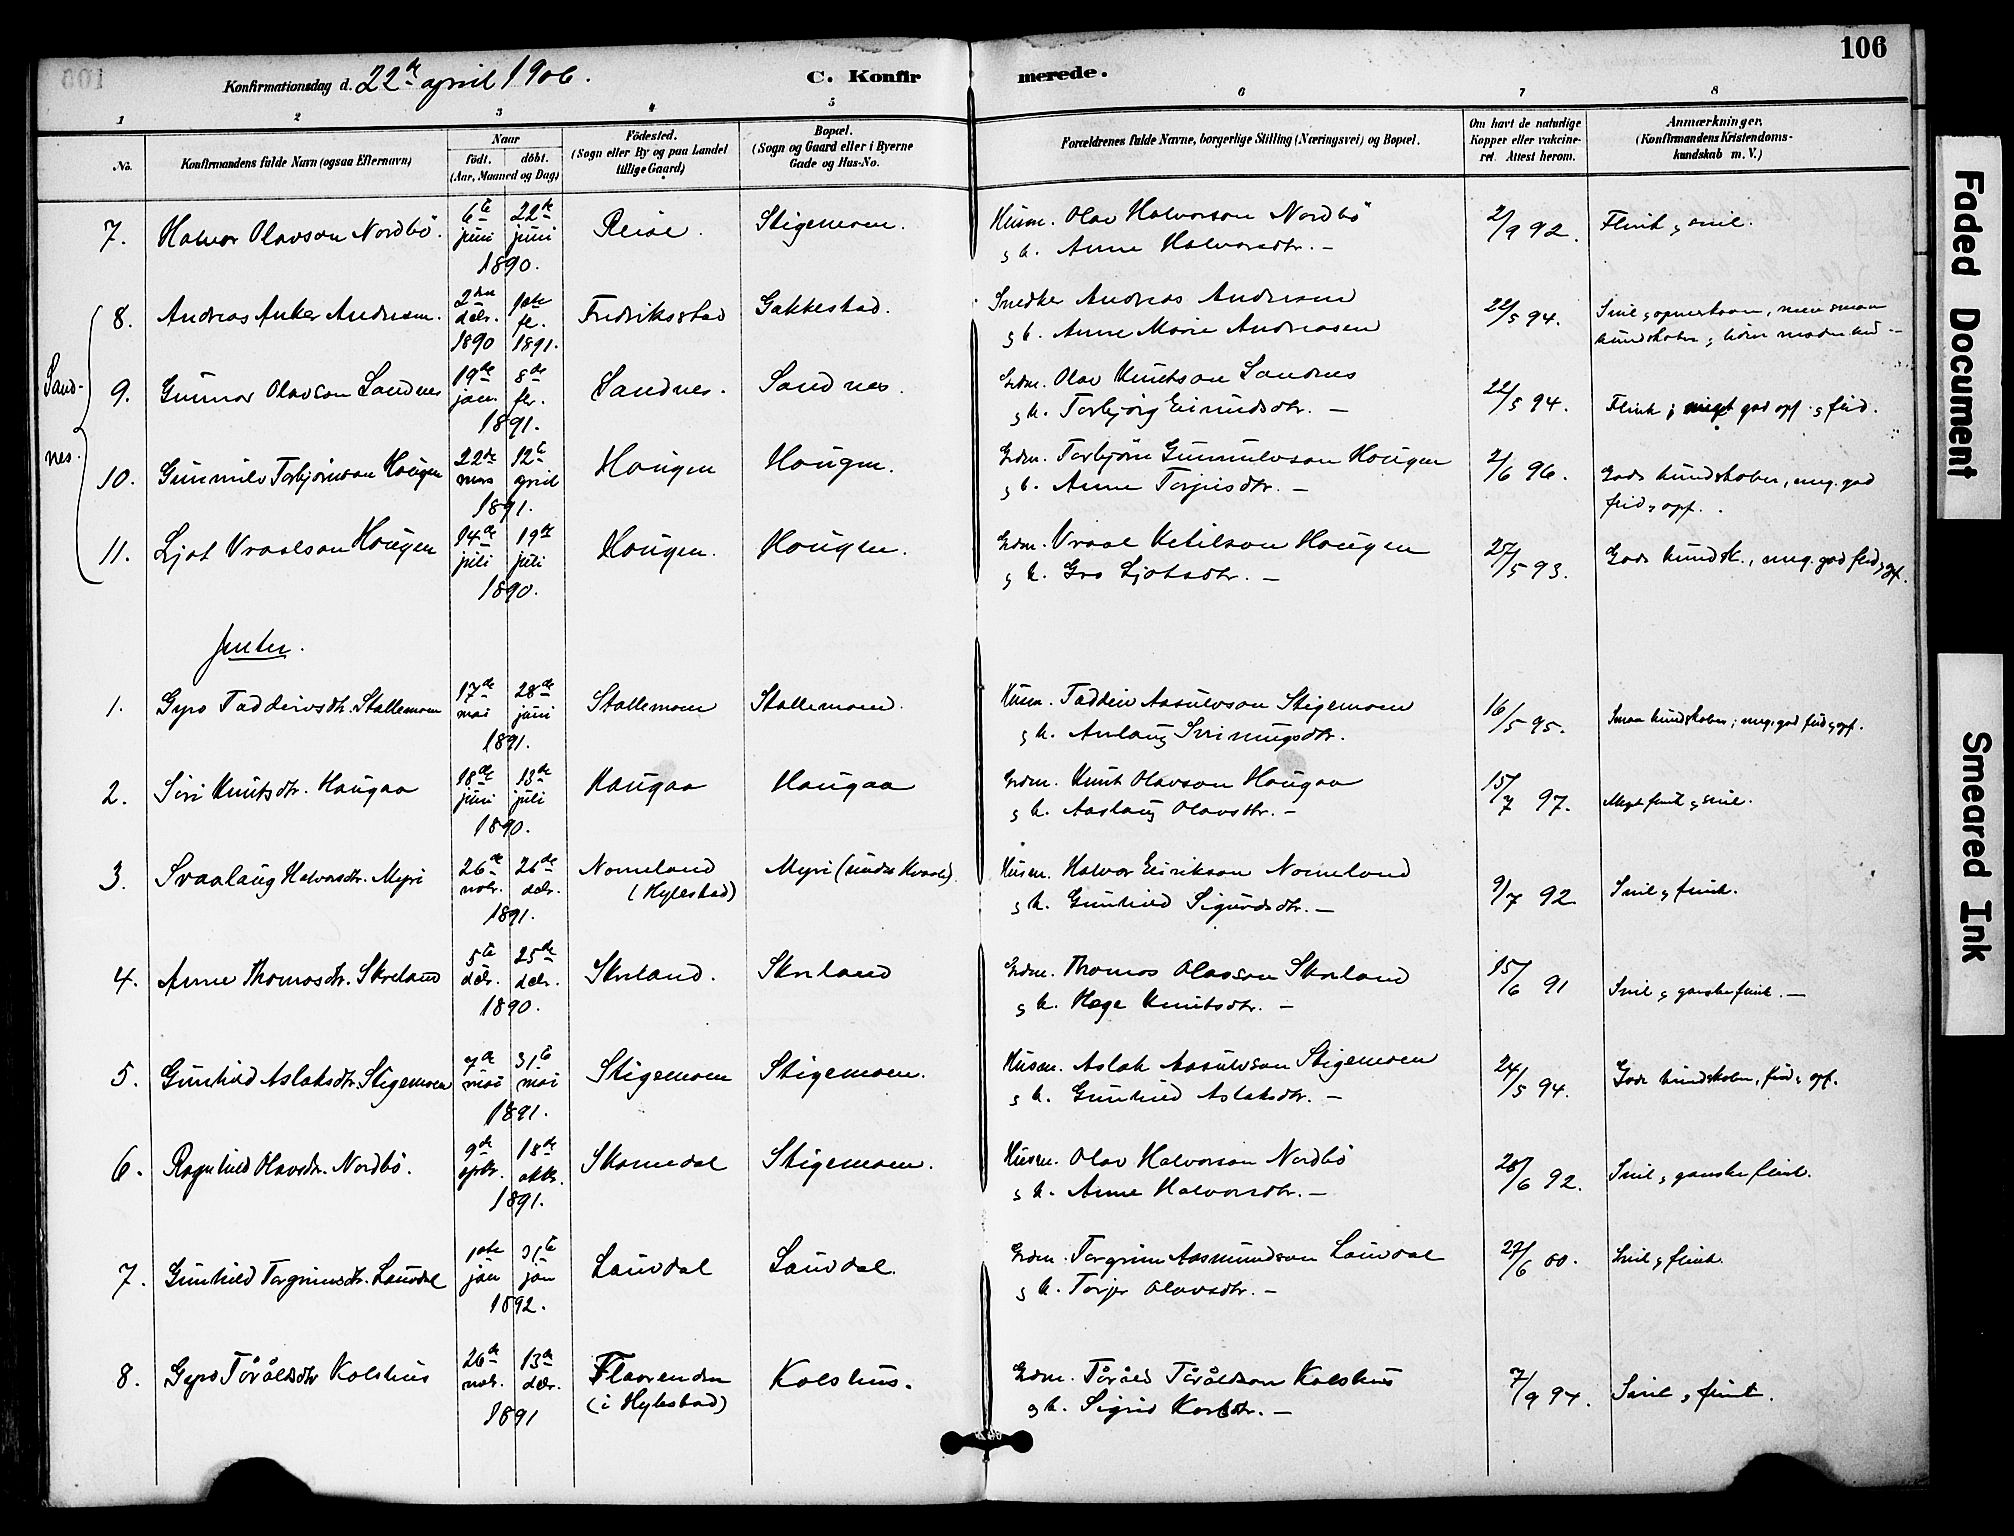 106
Konfirmationsdag d. 22de april 1906.
C. Konfirmerede.
1 2 3 4 5 6 7 8
No.
Konfirmandens fulde Navn (ogsaa Efternavn)
Naar
født. døbt.
(Aar, Maaned og Dag)
Fødested.
(Sogn eller By og paa Landet
tillige Gaard)
Bopæl.
(Sogn og Gaard eller i Byerne
Gade og Hus-No.
Forældrenes fulde Navne, borgerlige Stilling (Næringsvei) og Bopæl.
Om havt de naturlige
Kopper eller vakcine-
ret. Attest herom.
Anmærkninger.
(Konfirmandens Kristendoms-
kundskab m. V.)
7. Halvor Olavson Nordbö. 6te juni 22de juni 1890. Reiæ. Stigemoen. Husm. Olav Halvorson Nordbö
g h. Anne Halvorsdtr. — 2/9 92. Flink g snil.
Sand-
nes.
8. Andreas Anker Andresen. 2den decbr. 1890 1ste fe. 1891. Fredriksstad Gakkestad. Snedker Andreas Andresen
g h. Anne Marie Andreasen 22/5 94. Snil g opmerksom, men smaa
kundskaber
9. Gunnar Olavson Sandnes 19de jan. 8de febr. 1891. Sandnes. Sandnes. Grdm. Olav Knutson Sandnes
g h. Torbjörg Eivindsdtr. — 22/5 94. Flink; meget god opf. g flid.
10. Gunnulv Torbjörnson Haugen 22de mars 12te april 1891. Haugen Haugen. Grdm. Torbjörn Gunnulvson Haugen
g h. Anne Torjusdtr. — 2/6 96. Gode kundskaber, meg. god
flid g opf.
11. Ljot Vraalson Haugen 14de juli 19de juli 1890. Haugen. Haugen. Grdm. Vraal Ketilson Haugen
g h. Gro Ljotsdtr. — 27/5 93. Gode kundsk., meg. god flid g opf.
Jenter.
1. Gyro Taddeivsdtr. Stallemoen 17de mai 28de juni 1891. Stallemoen Stallemoen. Husm. Taddeiv Aasulvson Stigemoen
g h. Anlaug Sveinungsdtr. 16/5 95. Smaa kundskaber; meg. god flid g opf.
2. Siri Knutsdtr. Haugaa 18de juni 13de juli 1890. Haugaa Haugaa Grdm. Knut Olavson Haugaa
g h. Aaslaug Olavsdtr. — 15/7 97. Meget flink g snil.
3. Svaalaug Halvorsdtr. Myri 26de novbr. 26de decbr. 1891. Nomeland
(Hylestad) Myri (under Kvaale) Husm. Halvor Eirikson Nomeland
g h. Gunhild Sigurdsdtr. — 9/7 92. Snil g flink.
4. Anne Thomasdtr. Skreland 5te decbr. 25de decbr. 1890. Skreland. Skreland Grdm. Thomas Olavson Skreland
g h. Hege Knutsdtr. — 15/6 91 Snil g ganske flink. —
5. Gunhild Aslaksdtr. Stigemoen 7de mai 31te mai 1891. Stigemoen Stigemoen. Husm. Aslak Aasulvson Stigemoen
g h. Gunhild Aslaksdtr. — 24/5 94. Gode kundskaber, flid g opf.
6. Ragnhild Olavsdtr. Nordbö. 9de septbr. 18de oktbr. 1891. Skomedal Stigemoen. Husm. Olav Halvorson Nordbö
g h. Anne Halvorsdtr. — 28/6 92. Snil g ganske flink.
7. Gunhild Torgrimsdtr. Lauvdal 1ste jan 31te jan 1892. Lauvdal Lauvdal. Grdm. Torgrim Aasmundson Lauvdal
g h. Torjer Olavsdtr. — 27/6 00. Snil g flink.
8. Gyro Tåråldsdtr Kolshus 26de novbr. 13de decbr. 1891 Flaarenden
(i Hylestad) Kolshus. Grdm. Tårald Tåråldson Kolshus
g h. Sigrid Korbsdtr. — 7/9 94. Snil g flink.
Faded Document
Smeared Ink